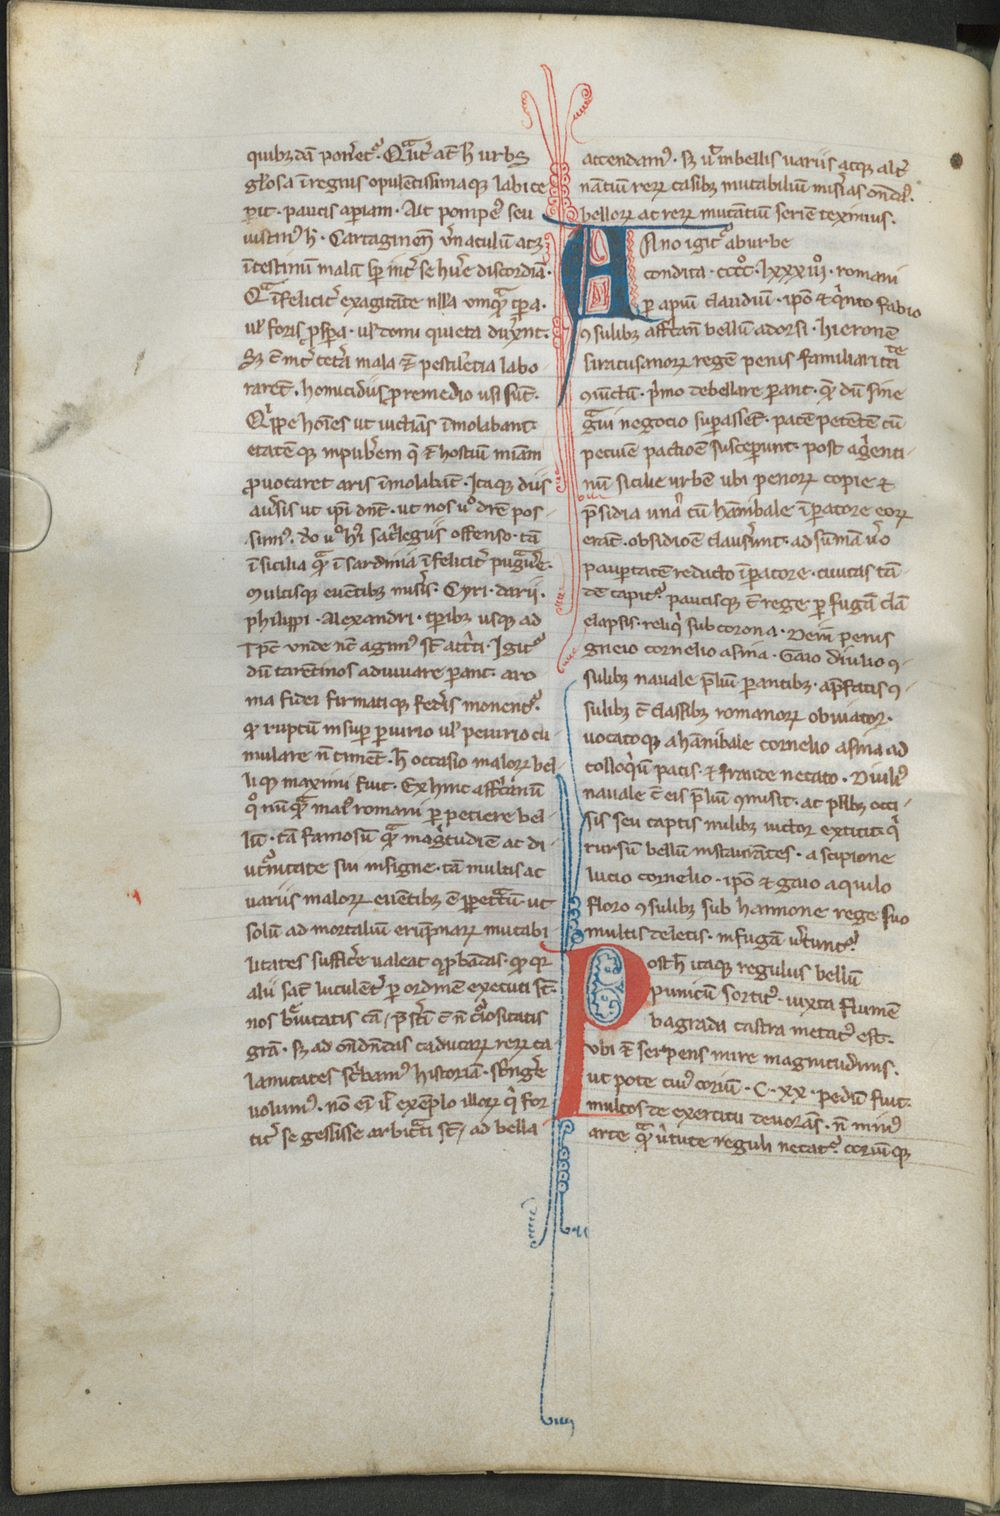 quibȝdā porret᷒. Qualit̓ at̄ h̄ urbs
gl̓osa ī regnis opulentissimaqȝ labi ce
ꝑit. paucis aꝑiam. Ait pompei᷒ seu
iustin᷒ h̄. Cartaginen̄ v̄naculū atqȝ
ītestinū malū sꝑ int̓ se hūe discordiā.
Q̄ īfelicit̓ exagitāte nlla unqͣ tꝑa.
ul̓ foris ꝓspa. ul̓ domi quieta duxnt.
Sȝ c̄ int̓ cet̓a mala ⁊ pestilētia labo-
rarent. homicidiis ꝓ remedio usi sūt.
Qͥppe hoīes ut uictīas īmolabant.
etatēqȝ inpub̓em q̄ ⁊ hostiū miam
ꝓuocaret aris īmolabāt. Itaqȝ diis
au̓sis ut ip̄i dn̄t. ut nos u᷒ dr̄e pos-
sum᷒. do u᷒ hͥ sac̓legiis offenso. tā
ī sicilia qͣ ī sardinia īfelicit̓ pugu̓e.
Multisqȝ euētibȝ mis̓is. Cyri. darii.
philippi. Alexandri. tꝑibȝ usqȝ ad
tp̄c unde nc̄ agim᷒ st̄ att̓ti. Igit᷒
dū tarētinos adiuuare ꝑant. a ro
ma fidei firmatiqȝ fed̓is monent᷒.
qͥ ruptū insuꝑ ꝑiurio ul̓ peiurio cu
mulare n̄ timēt. h̄ occasio malorꝝ bel-
liqȝ maximi fuit. Ex hinc affͥcanū
qͦ nūqͣ mai᷒ romani ꝑpetiere bel-
lū. tā famosū qͣ magͥtudīe ac di-
ut̓nitate sui insigne. tā multis ac
uariis malorꝝ euētibȝ ē ꝑpetͣtū. ut
solū ad mortaliū erūpnarꝝ mutabi-
litates suffic̓e ualeat ꝓbādas. qͥ qꝫ
alii sat̄ luculent̓ ꝑ ordinē executi st̄.
nos b̓uitatis cā. p̄st̓i c̄ n̄ c̓iositatis
gr̄a. Sȝ ad on̄dn̄das caducarꝝ rerꝝ ca
lamitates sc̓bam᷒ historiā. st̓nge̓
uolum᷒. nō ei ul̓ exēplo illorꝝ qͥ for
tit̓ se gessisse arbitͣti st̄, ad bella
attendam᷒. Sȝ uͭ in bellis uariis atqȝ alt̓
nātiū rerꝝ casibȝ mutabiliū mis̓ias ondā᷒.
bellorꝝ ac rerꝝ mutātiū seriē teximus.
Anno igit᷒ ab urbe
condita. cccc°. lxxxiiii. romani
ꝑ apiū claudiū. ipō ⁊ qͥnto fabio
ꝯsulibȝ affͥcanū bellū adorsi. hieronē
siracusanorꝝ regē penis familiaritate
ꝯiūctū. pͥmo debellare ꝑant. qͤ dū sine
gͣui negocio suꝑassēt. pacē petētē cū
pecuīe pactiōe susceꝑunt. post agͥenti-
nū sicilie urbē ubi penorꝝ copie ⁊
p̄sidia una cū hānibale īꝑatore eorꝝ
erāt. obsidiōe claus̓unt. ad sūmā u̓o
pauꝑtatē redacto īꝑatore. ciuitas tā-
dē capit᷒. paucisqȝ c̄ rege ꝑ fugā clā
elapsis. reliqͥ sub corona. Dein̄ penis
gneio cornelio asina. Gaio diulio ꝯ-
sulibȝ nauale p̄liū ꝑantibȝ. a p̄fatis ꝯ-
sulibȝ c̄ classibȝ romanorꝝ obuiator.
uocatoqȝ a hānibale cornelio asina ad
colloqͥū pacis. ⁊ fraude necato. Diuli᷒
nauale c̄ eis p̄liū ꝯmisit. ac plͥbȝ occi-
sis seu captis milibȝ uictor extitit qͥ
rursū bellū instaurātes. a scipione
lucio cornelio. ipō ⁊ gaio aquilo
floro ꝯsulibȝ sub hannone rege suo
multis deletis. in fugā u̓tunt᷒.
Post h̄ itaqȝ regulus bellū
punicū sortit᷒. iuxta flumē
bagrada castra metat᷒ est.
Vbi ⁊ serpens mire magnitudinis.
ut pote cui᷒ coriū. C. XX. pedū fuit.
multos de exercitu deuorās. n̄ min᷒
arte qͣ uͥtute reguli necat᷒. coriūqȝ